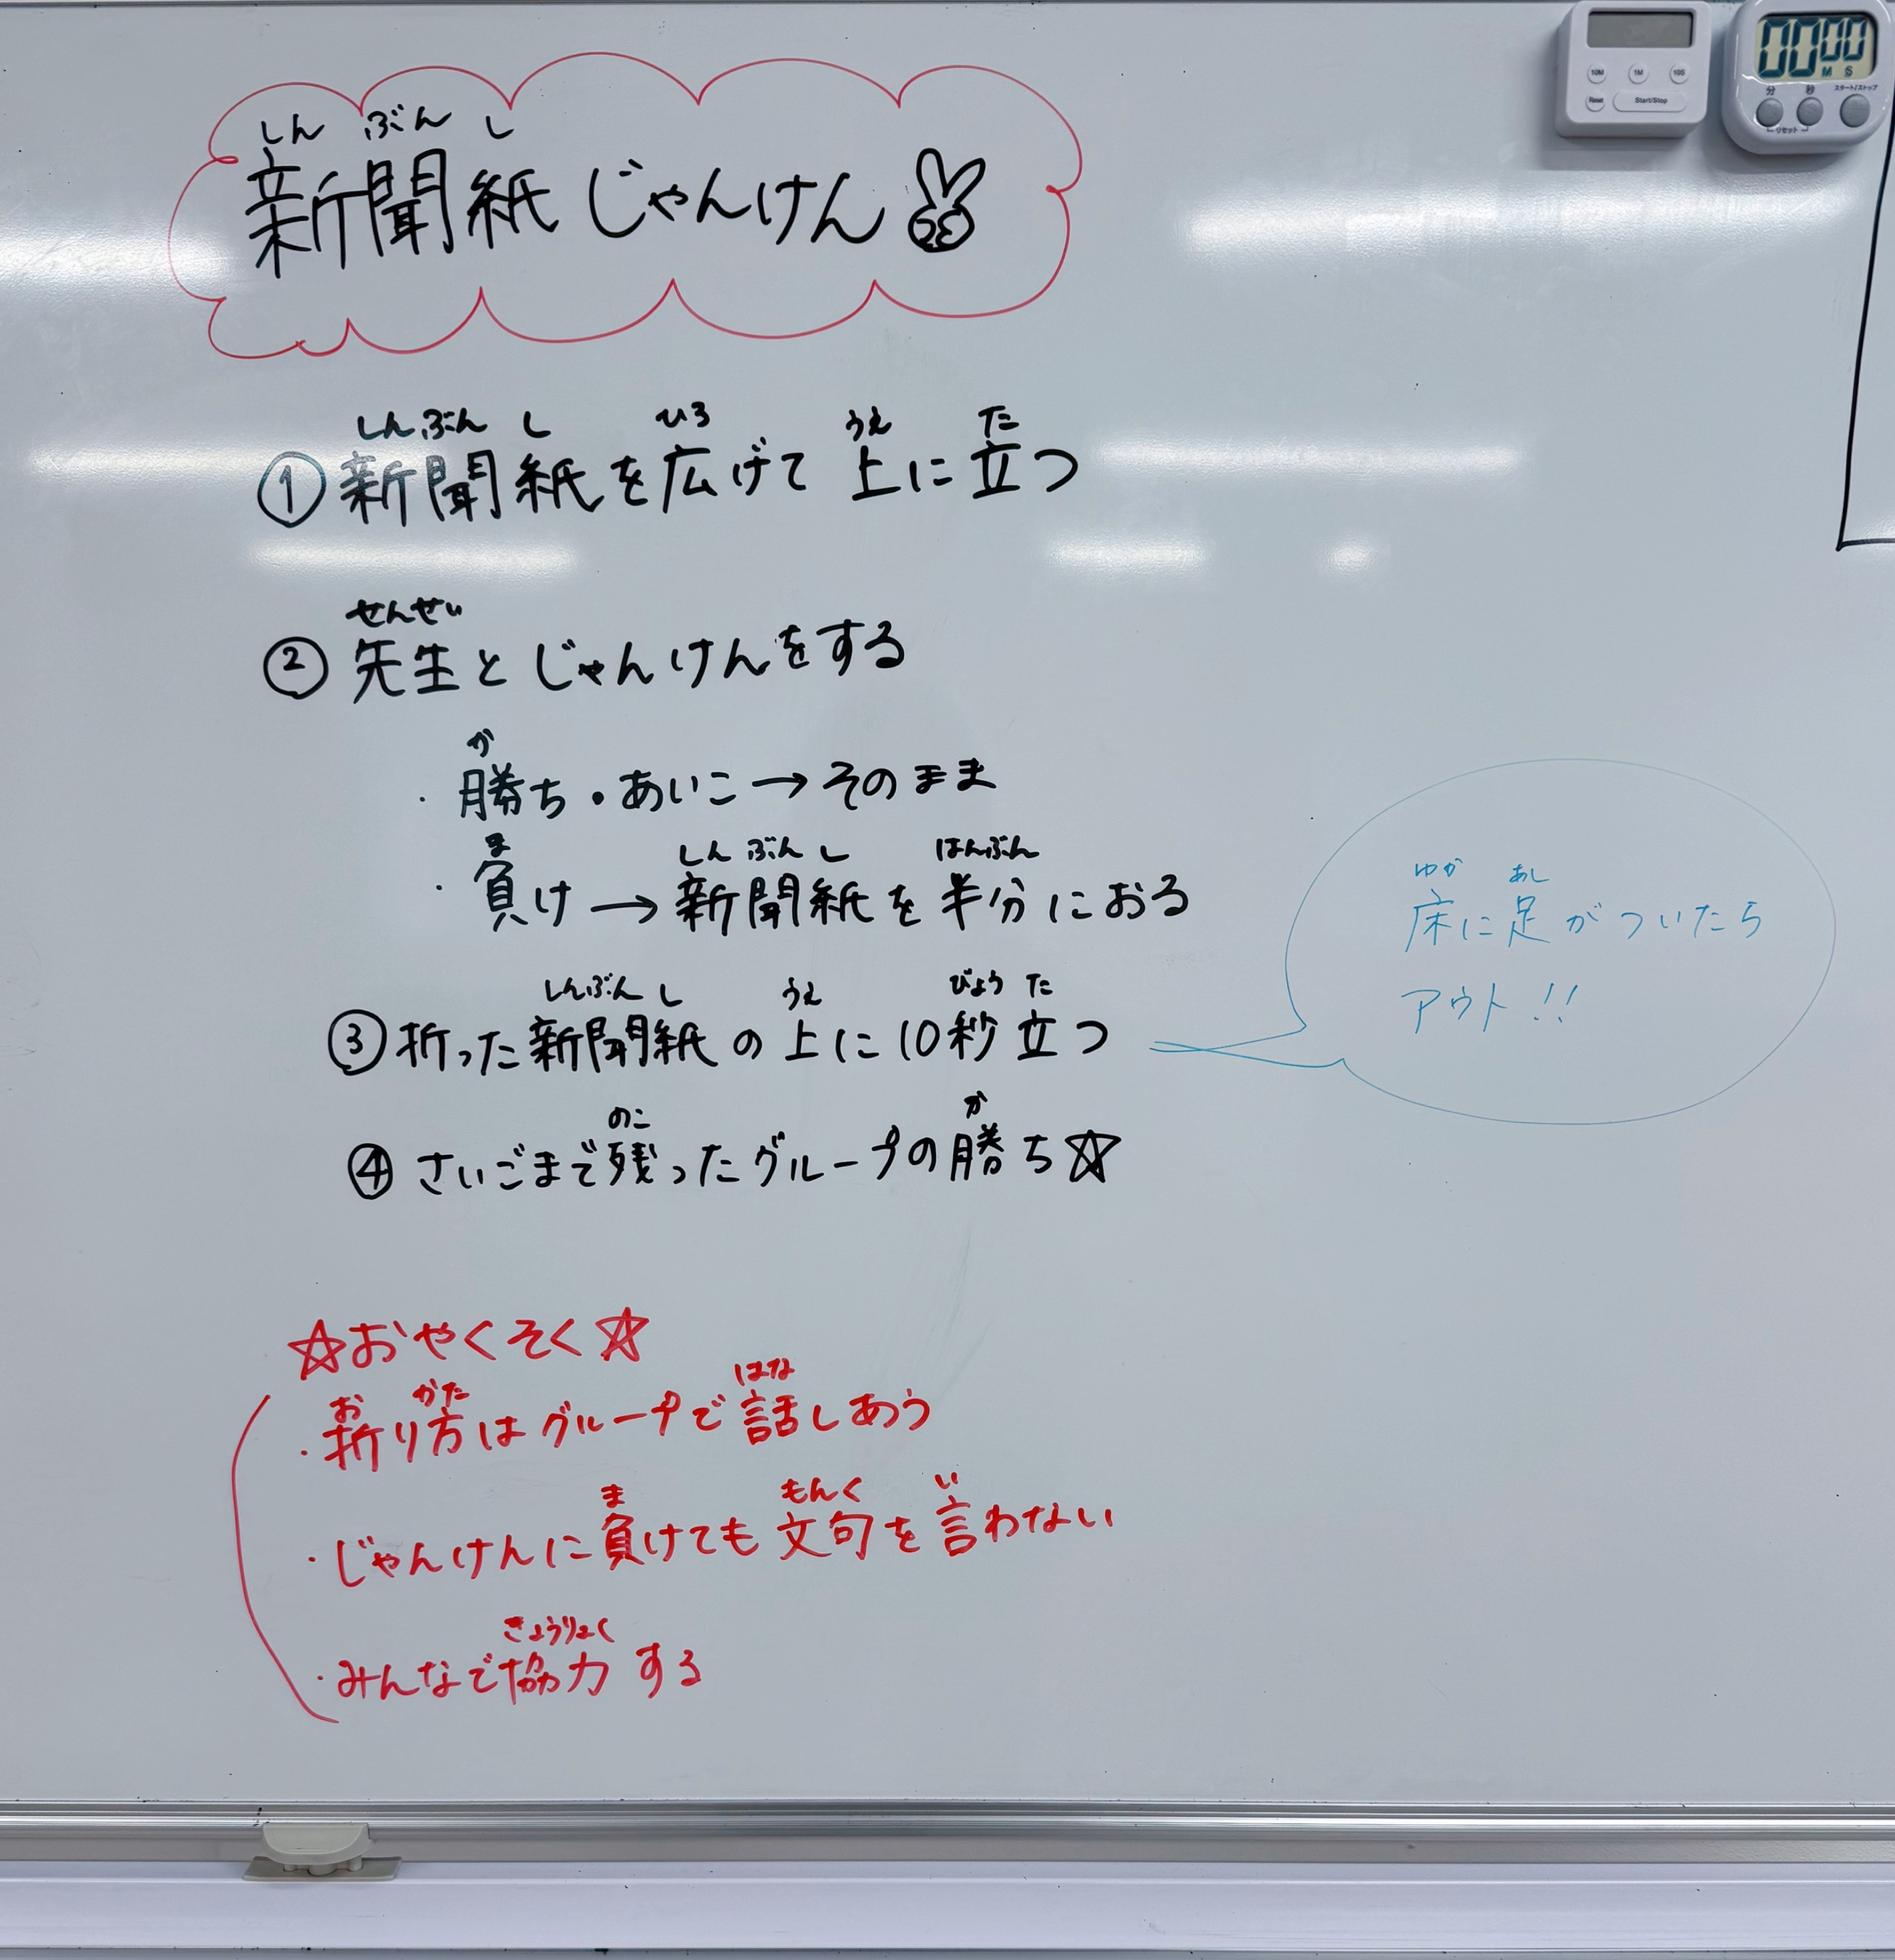 しん ぶん し
新聞紙じゃんけん
しんぶん し ひろ うえ た
① 新聞紙を広げて上に立つ
せんせい
② 先生とじゃんけんをする
か
・勝ち・あいこ→そのまま
ま しん ぶん し はんぶん
・負け→新聞紙を半分におる
しんぶん し うえ びょう た
③ 折った新聞紙の上に10秒立つ
ゆか あし
床に足がついたら
アウト!!
のこ か
④ さいごまで残ったグループの勝ち☆
☆おやくそく☆
お かた はな
・折り方はグループで話しあう
ま もんく い
・じゃんけんに負けても文句を言わない
きょうりょく
・みんなで協力する
10M 1M 10S
Reset Start/Stop
00 00
M S
分 秒 スタート/ストップ
リセット